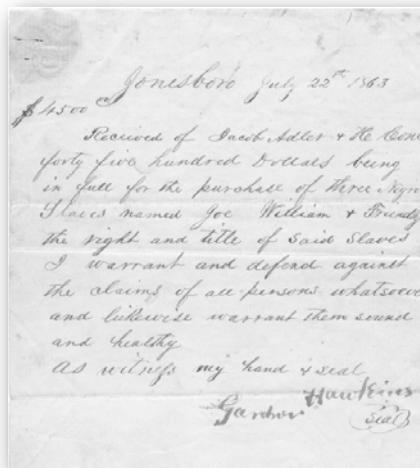 Jonesboro July 22th 1863
$4500
Received of Jacob Adler & He Cone
forty five hundred Dollars being
in full for the purchase of three Negro
Slaves named Joe William & Friendly
the right and title of Said Slaves
I warrant and defend against
the claims of all persons whatsoever
and likewise warrant them sound
and healthy
As witness my hand & seal
Hawkins
Seal